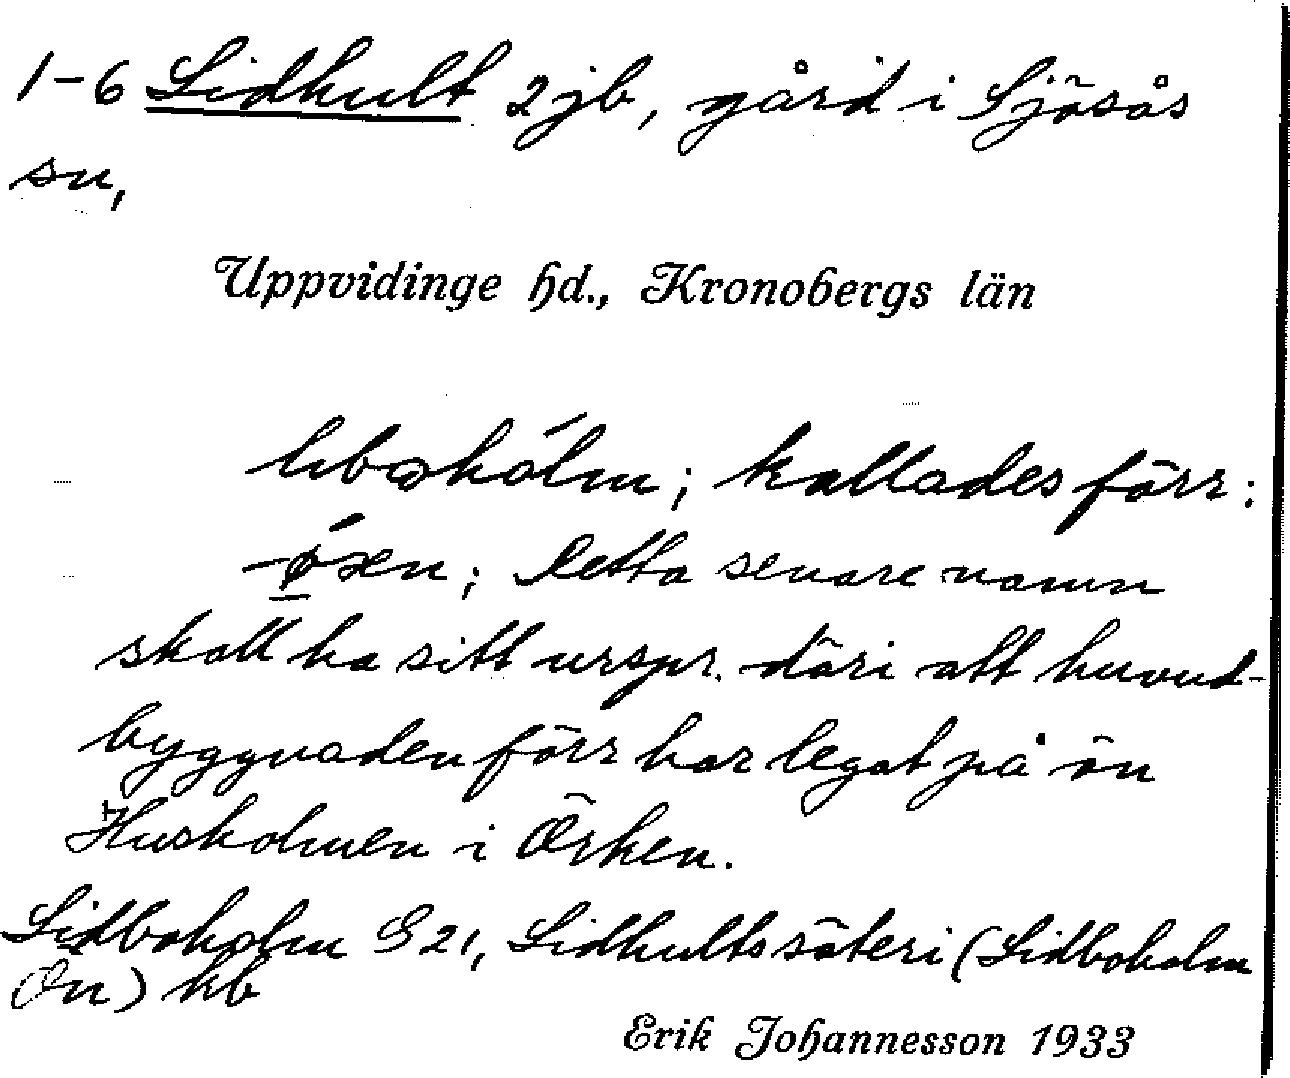 1-6 Lidhult 2 jb, gård i Sjösås
sn,
Uppvidinge hd., Kronobergs län
kallades förr:
Detta senare namn
skall ha sitt urspr. däri att huvud-
byggnaden förr har legat på ön
Husholmen i Örken.
Lidboholm G 21, Lidhults säteri (Lidboholm
Ön) kb
Erik Johannesson 1933